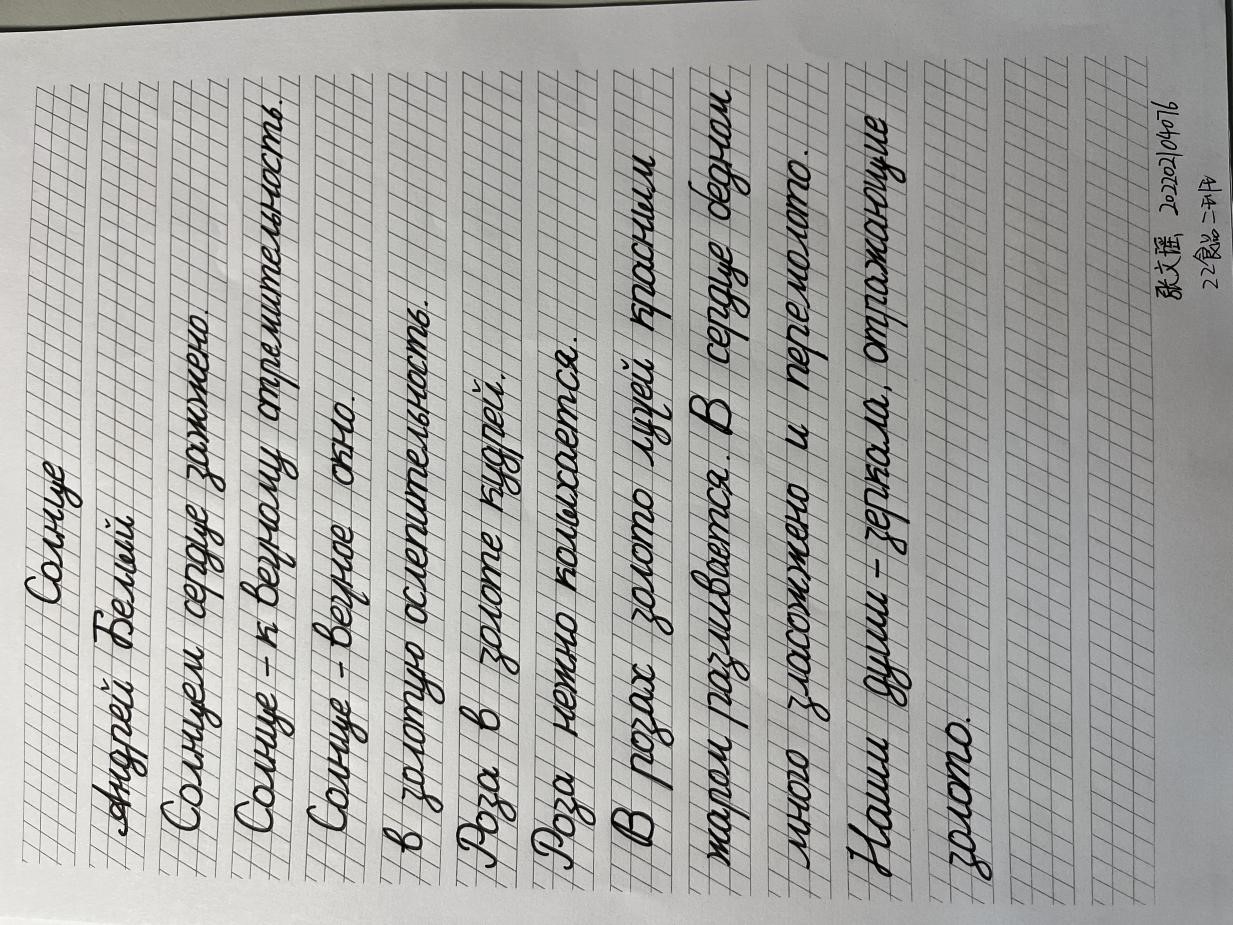 Солнце
Андрей Белый
Солнцем сердце зажжено.
Солнце - к вечному стремительность.
Солнце - вечное окно.
в золотую ослепительность.
Роза в золоте кудрей.
Роза нежно колыхается.
В розах золото лучей красным
жаром разливается. В сердце бедном
много зла сожжено и перемолото.
Наши души - зеркала, отражающие
золото.
张文瑶 202202104076
22食品二班